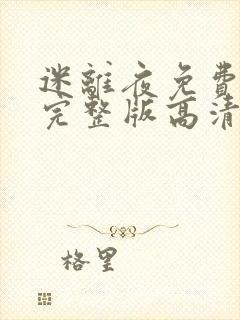 迷離夜免費
完整版高清
格里